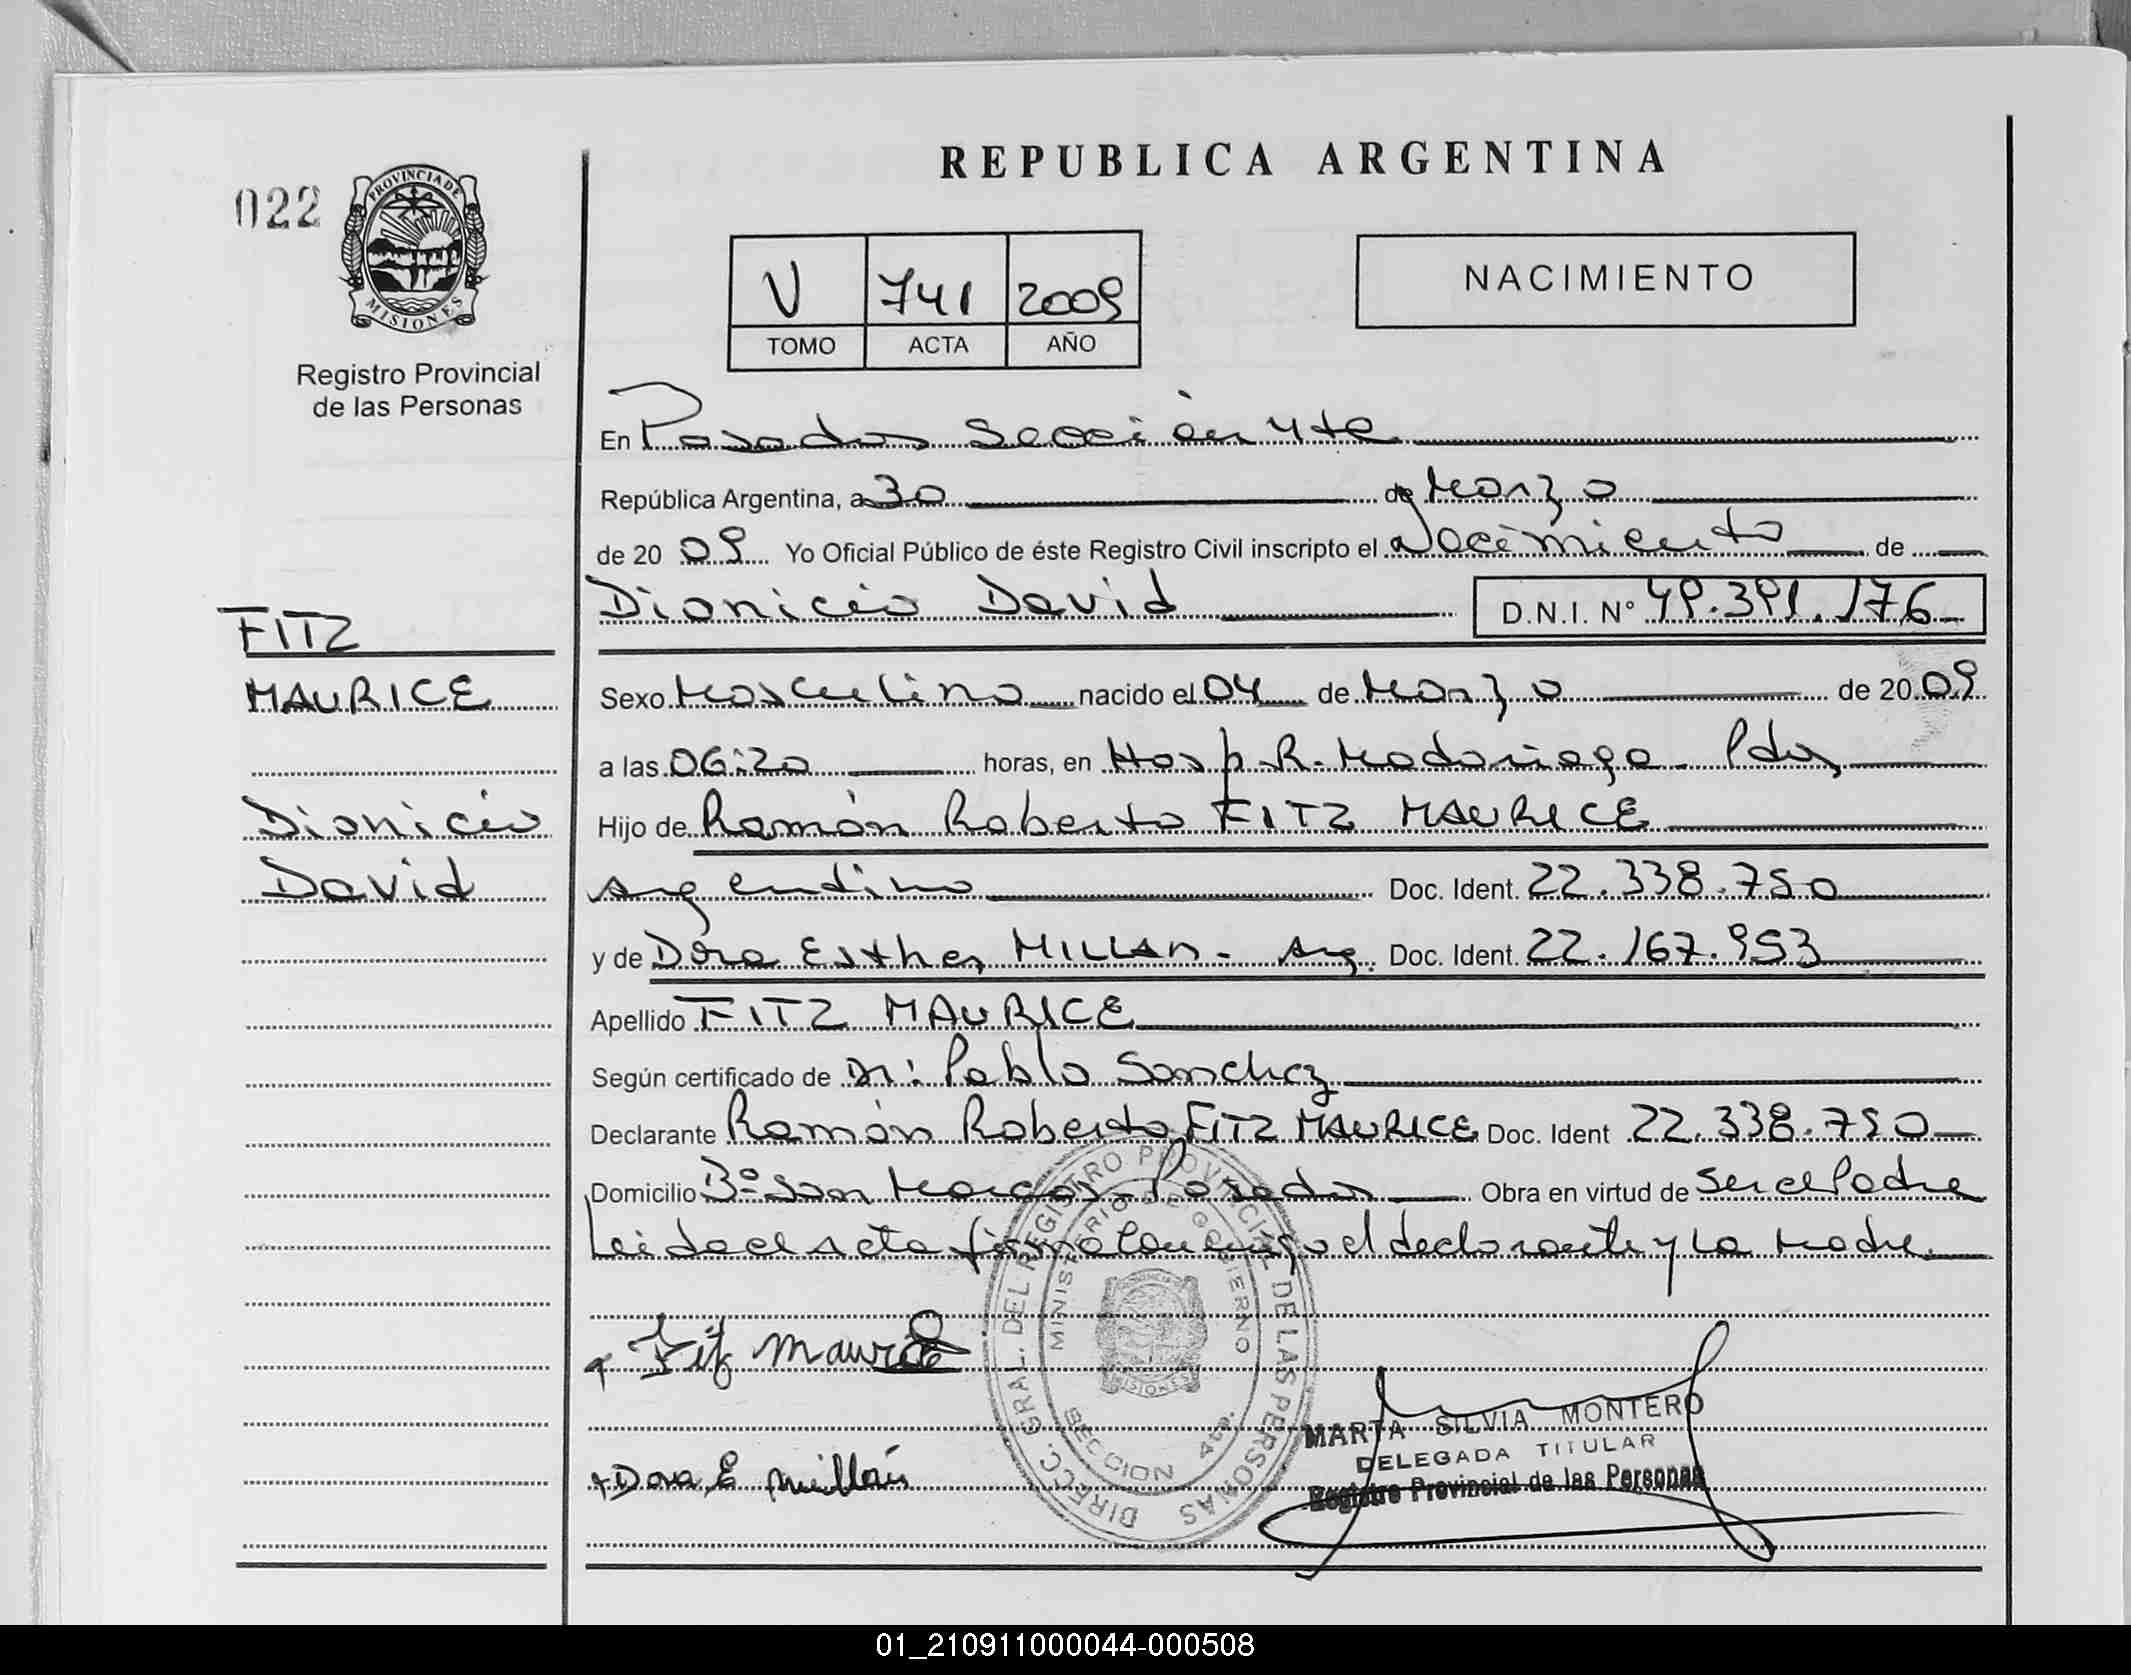 REPUBLICA ARGENTINA
022
PROVINCIA DE
MISIONES
Registro Provincial
de las Personas
V 741 2009
TOMO ACTA AÑO
NACIMIENTO
En Posadas Sección 4ta
República Argentina, a 30 de Marzo
de 20 09 Yo Oficial Público de éste Registro Civil inscripto el Nacimiento de
Dionicio David D.N.I. Nº 49.391.176
FITZ
MAURICE
Dionicio
David
Sexo Masculino nacido el 04 de Marzo de 20 09
a las 06:20 horas, en Hosp. R. Madariaga - Pdas
Hijo de Ramón Roberto FITZ MAURICE
Argentino Doc. Ident. 22.338.750
y de Dora Esther MILLAN - Arg. Doc. Ident. 22.167.953
Apellido FITZ MAURICE
Según certificado de Dr: Pablo Sanchez
Declarante Ramón Roberto FITZ MAURICE Doc. Ident 22.338.750
Domicilio Bº San Marcos - Posadas Obra en virtud de Ser el Padre
Leida el acta firma conmigo el declarante y la Madre
Fitz Maurice
Dora E Millán
DIRECC. GRAL. DEL REGISTRO PROVINCIAL DE LAS PERSONAS
MINISTERIO DE GOBIERNO
SECCION 4ta.
MISIONES
MARTA SILVIA MONTERO
DELEGADA TITULAR
Registro Provincial de las Personas
01_210911000044-000508